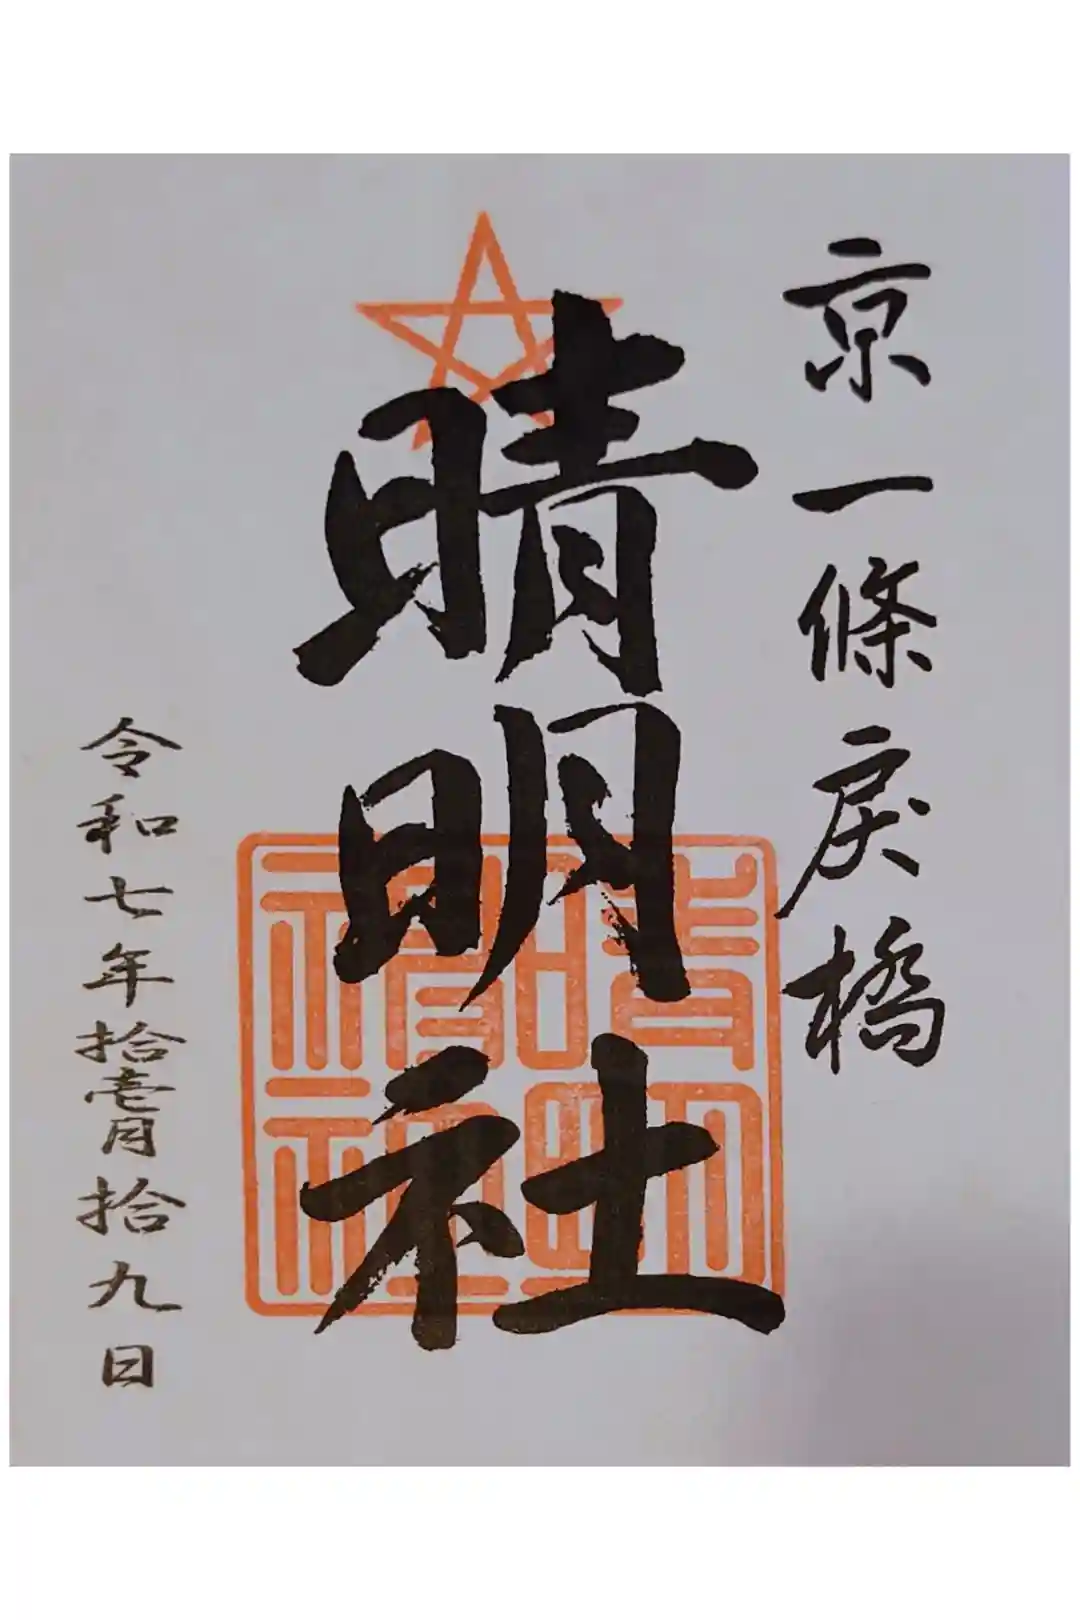 京一條戾橋
晴明社
晴明神社
令和七年拾壱月拾九日